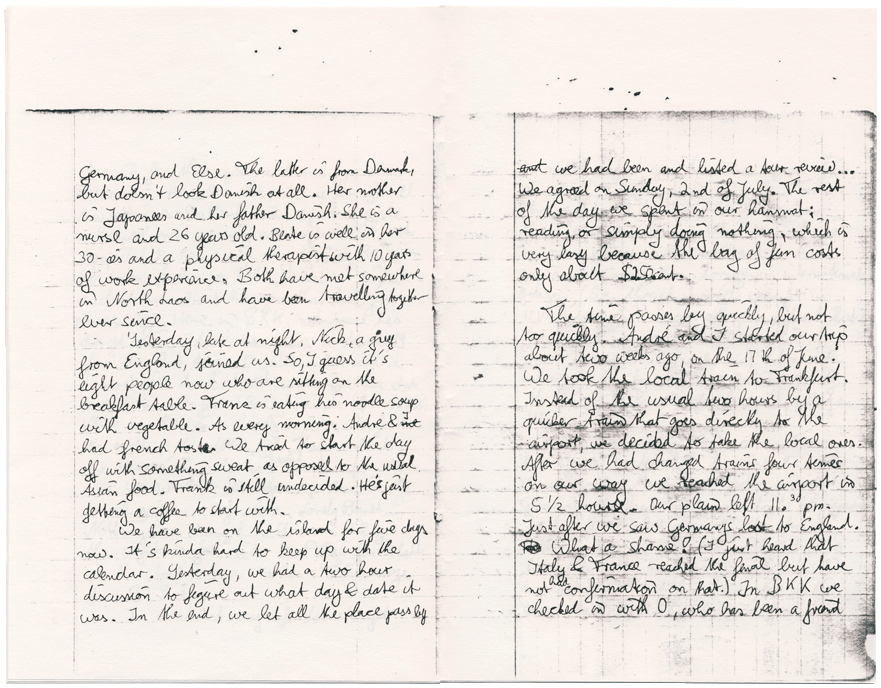 Germany, and Else. The latter is from Denmark,
but doesn't look Danish at all. Her mother
is Japanees and her father Danish. She is a
nurse and 26 years old. Beate is well in her
30-ies and a physical therapist with 10 years
of work experience. Both have met somewhere
in North Laos and have been travelling together
ever since.
Yesterday, late at night, Nick, a guy
from England, joined us. So, I guess it's
eight people now who are sitting on the
breakfast table. Franc is eating his noodle soup
with vegetable. As every morning. André & I
had french toste. We tried to start the day
off with something sweat as opposed to the usual
Asian food. Frank is still undecided. He's just
getting a coffee to start with.
We have been on the island for five days
now. It's kinda hard to keep up with the
calendar. Yesterday, we had a two hour
discussion to figure out what day & date it
was. In the end, we let all the place pass by
we had been and listed a tour review...
We agreed on Sunday, 2nd of July. The rest
of the day we spent in our hammat;
reading, or simply doing nothing, which is
very easy because the bag of fun costs
only about
The time passes by quickly, but not
too quickly. André and I started our trip
about two weeks ago, on the 17th of June.
We took the local train to Frankfurt.
Instead of the usual two hours by a
quicker train that goes directly to the
airport, we decided to take the local ones.
After we had changed trains four times
on our way we reached the airport in
5 1/2 hours. Our plain left 11.30 pm.
Just after we saw Germanys lost to England.
What a shame! (I just heard that
Italy & France reached the final but have
not had confirmation on that.) In BKK we
checked in with O, who has been a friend